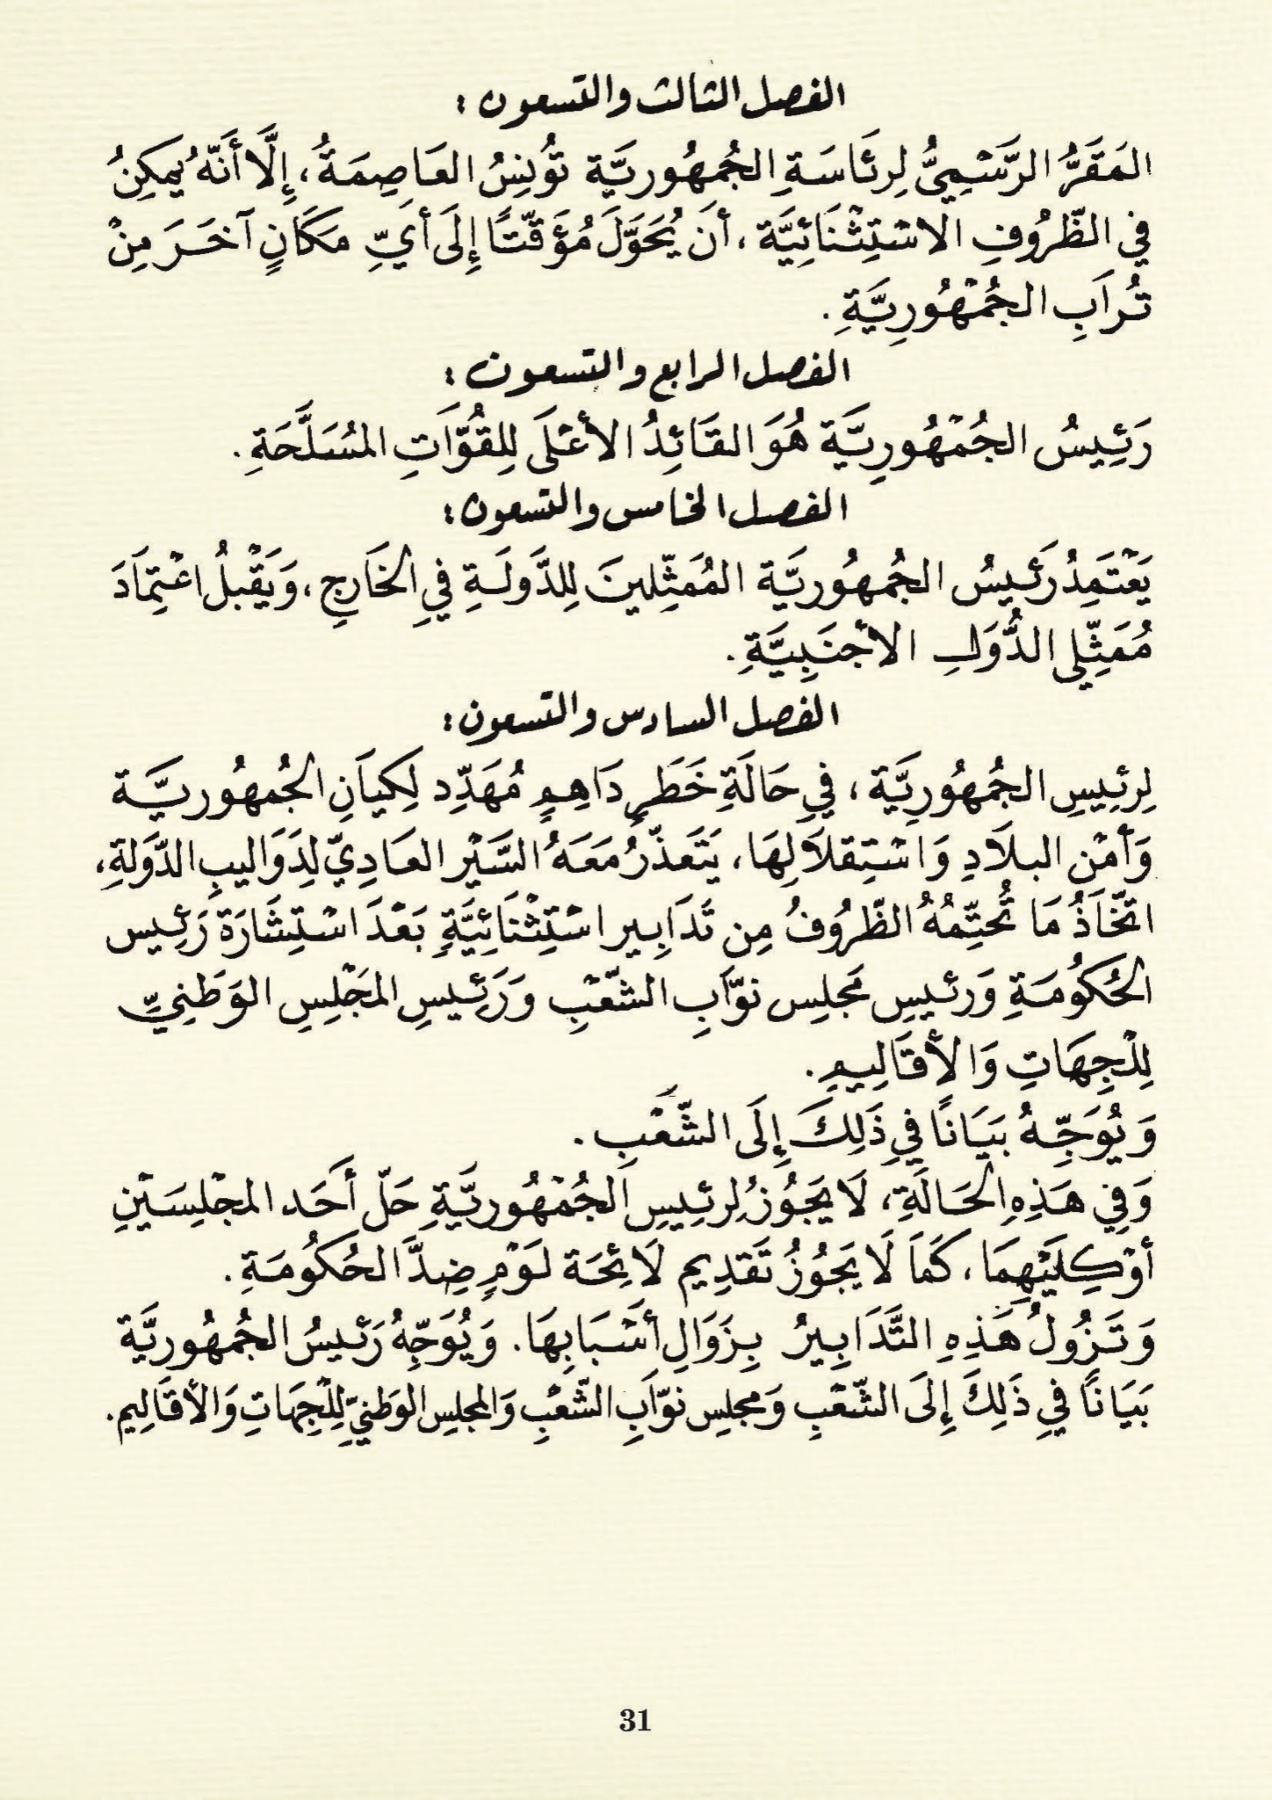 الفصل الثالث والتسعون :
المَقَرُّ الرَّسْمِيُّ لِرئَاسَةِ الجُمهُوريَّة تُونِسُ العَاصِمَةُ، إِلَّا أَنَّهُ يُمكِنُ
في الظّرُوفِ الاسْتِثْنَائِيَّة، أَن يُحَوَّلَ مُؤَقّتًا إِلَى أَيِّ مَكَانٍ آخَرَ مِنْ
تُرابِ الجُمْهُورِيَّةِ.
الفصل الرابع والتسعون :
رَئِيسُ الجُمْهُورِيَّة هُوَ القَائِدُ الأعْلَى لِلقُوَّاتِ المُسَلَّحَةِ.
الفصل الخامس والتسعون :
يَعْتَمِدُ رَئِيسُ الجُمهُوريَّة المُمَثِّلِينَ لِلدَّولَةِ فِي الخَارِجِ، وَيَقْبلُ اعْتِمَادَ
مُمَثِّلِي الدُّوَلِ الأجْنَبِيَّةِ.
الفصل السادس والتسعون :
لِرئِيسِ الجُمهُورِيَّة، فِي حَالَةِ خَطَرٍ دَاهِمٍ مُهَدِّد لِكيَانِ الجُمهُوريَّة
وَأَمْن البلَادِ وَاسْتِقلَالِهَا، يَتَعَذّرُ مَعَهُ السَّيْر العَادِيّ لِدَوَاليبِ الدّوَلةِ،
اتّخَاذُ مَا تُحَتِّمُهُ الظّرُوفُ مِن تَدَابِير اسْتِثْنَائِيَّةٍ بَعْدَ اسْتِشَارَة رَئِيس
الحُكُومَةِ وَرئيسِ مَجلِس نوّابِ الشّعْبِ وَرَئِيسِ المَجْلِسِ الوَطَنِيِّ
لِلْجِهَاتِ وَالأقَالِيمِ.
وَيُوَجِّهُ بَيَانًا فِي ذَلِكَ إِلَى الشّعْبِ.
وَفِي هَذِهِ الحَالَةِ، لَا يَجُوزُ لِرئِيسِ الجُمْهُوريَّةِ حَلّ أَحَد المجْلِسَيْنِ
أَوْ كِلَيْهِمَا، كَمَا لَا يَجُوزُ تَقدِيم لَائِحَة لَوْمٍ ضِدَّ الحُكُومَةِ.
وَتَزُولُ هَذِهِ التَّدَابِيرُ بِزَوَالِ أَسْبَابِهَا. وَيُوَجِّهُ رَئِيسُ الجُمهُوريَّة
بَيَانًا فِي ذَلِكَ إِلَى الشّعْبِ وَمجلِس نوّابِ الشّعْبِ وَالمجلِس الوَطنيِّ لِلْجِهَاتِ وَالأقَالِيم.
31